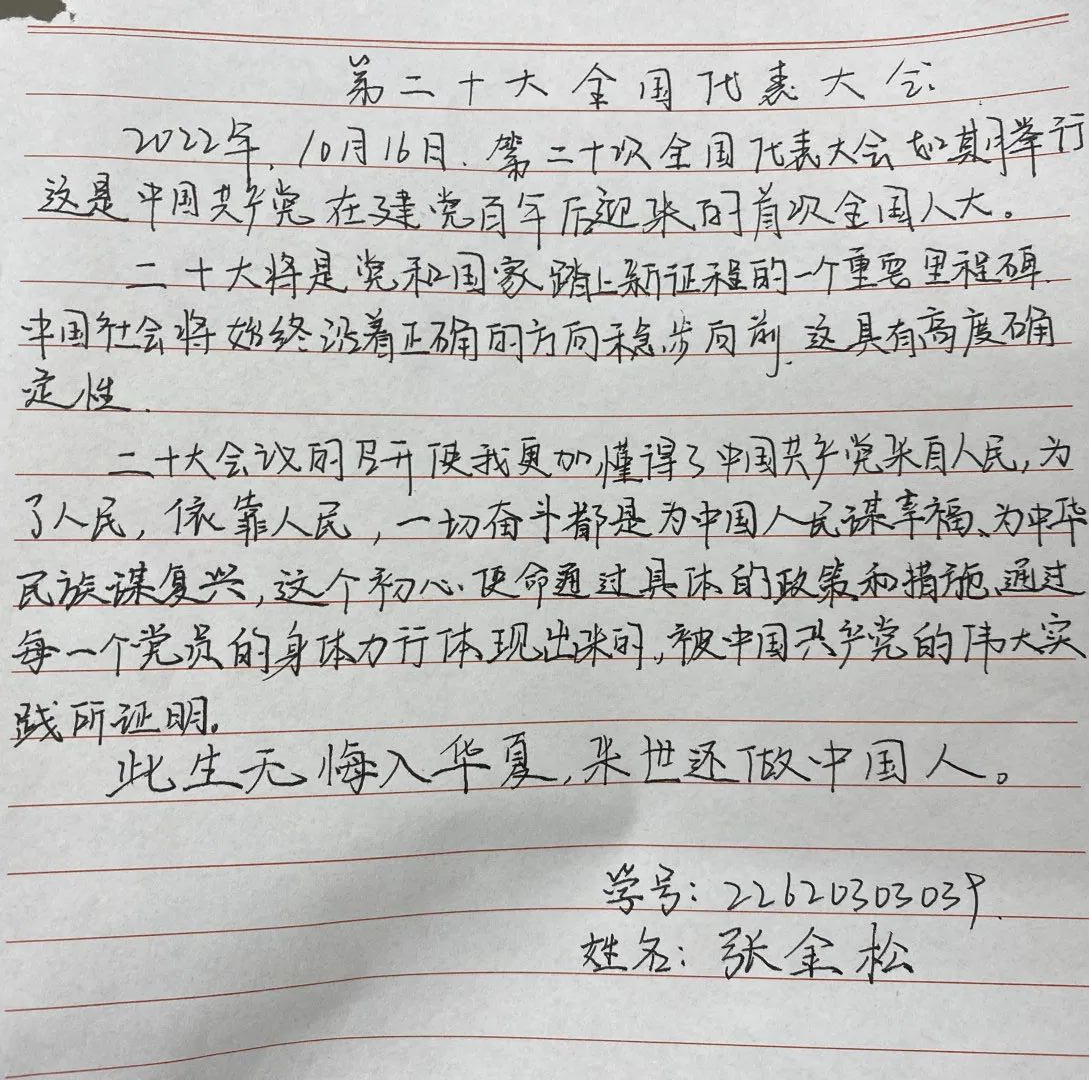 第二十大全国代表大会
2022年,10月16日,第二十次全国代表大会如期举行
这是中国共产党在建党百年后迎来的首次全国人大。
二十大将是党和国家踏上新征程的一个重要里程碑.
中国社会将始终沿着正确的方向稳步向前,这具有高度确
定性.
二十大会议的召开使我更加懂得了中国共产党来自人民,为
了人民,依靠人民,一切奋斗都是为中国人民谋幸福、为中华
民族谋复兴,这个初心使命通过具体的政策和措施、通过
每一个党员的身体力行体现出来的,被中国共产党的伟大实
践所证明。
此生无悔入华夏,来世还做中国人。
学号:22620303039.
姓名:张金松